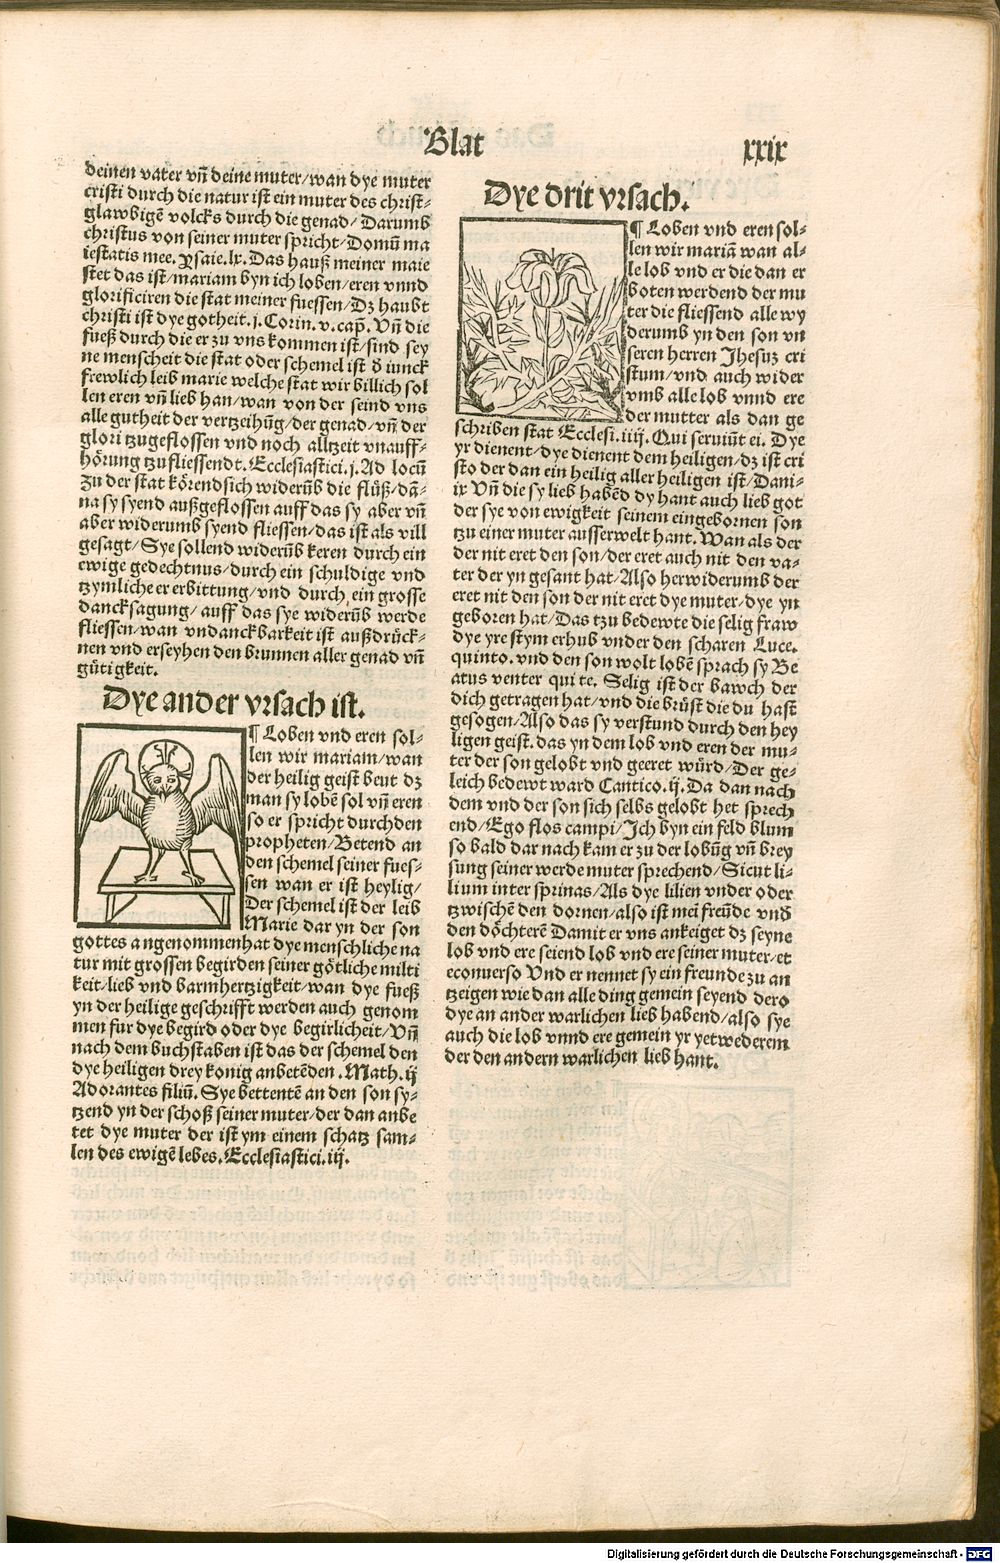 Blat xxix
deinen vater vñ deine muter/wan dye muter
cristi durch die natur ist ein muter des christ⸗
glawbigẽ volcks durch die genad/Darumb
christus von seiner muter spricht/Domũ ma
iestatis mee. Ysaie.lx. Das hauß meiner maie
stet das ist/mariam byn ich loben/eren vnnd
glorificiren die stat meiner fuessen/Dz haubt
christi ist dye gotheit.j.Corin.v.cap̃. Vñ die
fueß durch die er zu vns kommen ist/sind sey
ne menscheit die stat oder schemel ist ð iunck
frewlich leib marie welche stat wir billich sol
len eren vñ lieb han/wan von der seind vns
alle gutheit der vertzeihũg/der genad/vñ der
glori tzugeflossen vnd noch alltzeit vnauff⸗
hörung tzufliessendt.Ecclesiastici.j.Ad locũ
Zu der stat körend sich widerũb die flüß/dã⸗
na sy syend außgeflossen auff das sy aber vñ
aber widerumb syend fliessen/das ist als vill
gesagt/Sye sollend widerũb keren durch ein
ewige gedechtnus/durch ein schuldige vnd
tzymliche er erbittung/vnd durch ein grosse
dancksagung/auff das sye widerũb werde
fliessen/wan vndanckbarkeit ist außdrück⸗
nen vnd erseyhen den brunnen aller genad vñ
gütigkeit.
Dye ander vrsach ist.
¶ Loben vnd eren sol⸗
len wir mariam/wan
der heilig geist beut dz
man sy lobẽ sol vñ eren
so er spricht durch den
propheten/Betend an
den schemel seiner fues⸗
sen wan er ist heylig/
Der schemel ist der leib
Marie dar yn der son
gottes angenommen hat dye menschliche na
tur mit grossen begirden seiner götliche milti
keit/lieb vnd barmhertzigkeit/wan dye fueß
yn der heilige geschrifft werden auch genom
men fur dye begird oder dye begirlicheit/Vñ
nach dem buchstaben ist das der schemel den
dye heiligen drey konig anbetẽden.Math.ij
Adorantes filiũ. Sye bettentẽ an den son sy⸗
tzend yn der schoß seiner muter/der dan anbe
tet dye muter der ist ym einem schatz sam⸗
len des ewigẽ lebes.Ecclesiastici.iij.
Dye drit vrsach.
¶ Loben vnd eren sol⸗
len wir mariã wan al⸗
le lob vnd er die dan er
boten werdend der mu
ter die fliessend alle wy
derumb yn den son vn
seren herren Jhesuz cri
stum/vnd auch wider
vmb alle lob vnnd ere
der mutter als dan ge
schriben stat Ecclesi.iiij.Qui seruiũt ei. Dye
yr dienent/dye dienent dem heiligen/dz ist cri
sto der dan ein heilig aller heiligen ist/Dani⸗
ix Vñ die sy lieb habẽd dy hant auch lieb got
der sye von ewigkeit seinem eingebornen son
tzu einer muter ausserwelt hant.Wan als der
der nit eret den son/der eret auch nit den va⸗
ter der yn gesant hat/Also herwiderumb der
eret nit den son der nit eret dye muter/dye yn
geboren hat/Das tzu bedewte die selig fraw
dye yre stym erhub vnder den scharen Luce.
quinto.vnd den son wolt lobẽ sprach sy Be
atus venter qui te. Selig ist der bawch der
dich getragen hat/vnd die brüst die du hast
gesogen/Also das sy verstund durch den hey
ligen geist.das yn dem lob vnd eren der mu⸗
ter der son gelobt vnd geeret würd/Der ge⸗
leich bedewt ward Cantico.ij.Da dan nach
dem vnd der son sich selbs gelobt het sprech
end/Ego flos campi/Ich byn ein feld blum
so bald dar nach kam er zu der lobũg vñ brey
sung seiner werde muter sprechend/Sicut li⸗
lium inter sprinas/Als dye lilien vnder oder
tzwischẽ den dornen/also ist mei freũde vnð
den döchterẽ Damit er vns ankeiget dz seyne
lob vnd ere seiend lob vnd ere seiner muter/et
econuerso Vnd er nennet sy ein freunde zu an
tzeigen wie dan alle ding gemein seyend dero
dye an ander warlichen lieb habend/also sye
auch die lob vnnd ere gemein yr yetwederem
der den andern warlichen lieb hant.
Digitalisierung gefördert durch die Deutsche Forschungsgemeinschaft - DFG